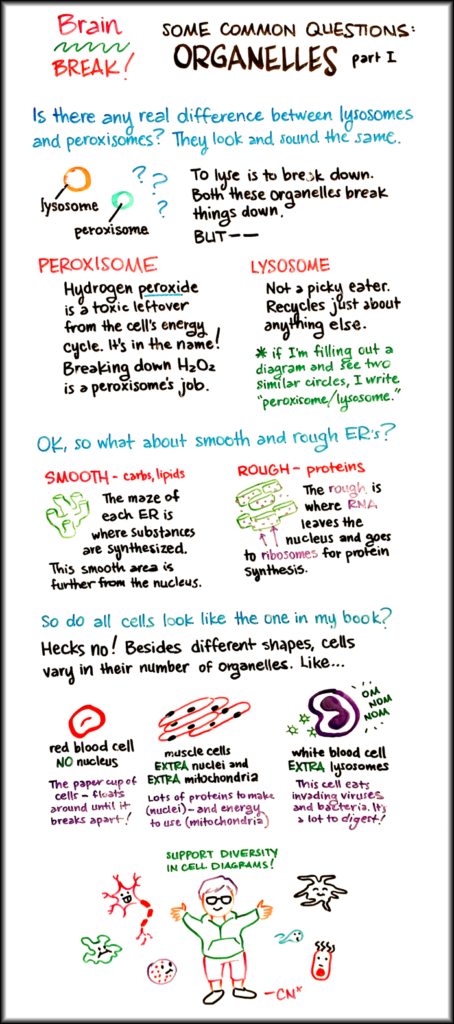 Brain
BREAK!
SOME COMMON QUESTIONS:
ORGANELLES part I
Is there any real difference between lysosomes
and peroxisomes? They look and sound the same.
lysosome
peroxisome
? ? ?
To lyse is to break down.
Both these organelles break
things down.
BUT--
PEROXISOME
Hydrogen peroxide
is a toxic leftover
from the cell's energy
cycle. It's in the name!
Breaking down H2O2
is a peroxisome's job.
LYSOSOME
Not a picky eater.
Recycles just about
anything else.
* if I'm filling out a
diagram and see two
similar circles, I write
"peroxisome/lysosome."
OK, so what about smooth and rough ER's?
SMOOTH - carbs, lipids
The maze of
each ER is
where substances
are synthesized.
This smooth area is
further from the nucleus.
ROUGH - proteins
The rough is
where RNA
leaves the
nucleus and goes
to ribosomes for protein
synthesis.
So do all cells look like the one in my book?
Hecks no! Besides different shapes, cells
vary in their number of organelles. Like...
red blood cell
NO nucleus
The paper cup of
cells - floats
around until it
breaks apart!
muscle cells
EXTRA nuclei and
EXTRA mitochondria
Lots of proteins to make
(nuclei) - and energy
to use (mitochondria)
OM
NOM
NOM
white blood cell
EXTRA lysosomes
This cell eats
invading viruses
and bacteria. It's
a lot to digest!
SUPPORT DIVERSITY
IN CELL DIAGRAMS!
-CN*